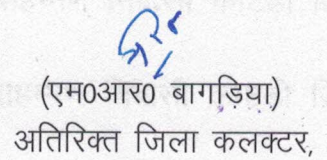 (एम0आर0 बागड़िया)
अतिरिक्त जिला कलक्टर,